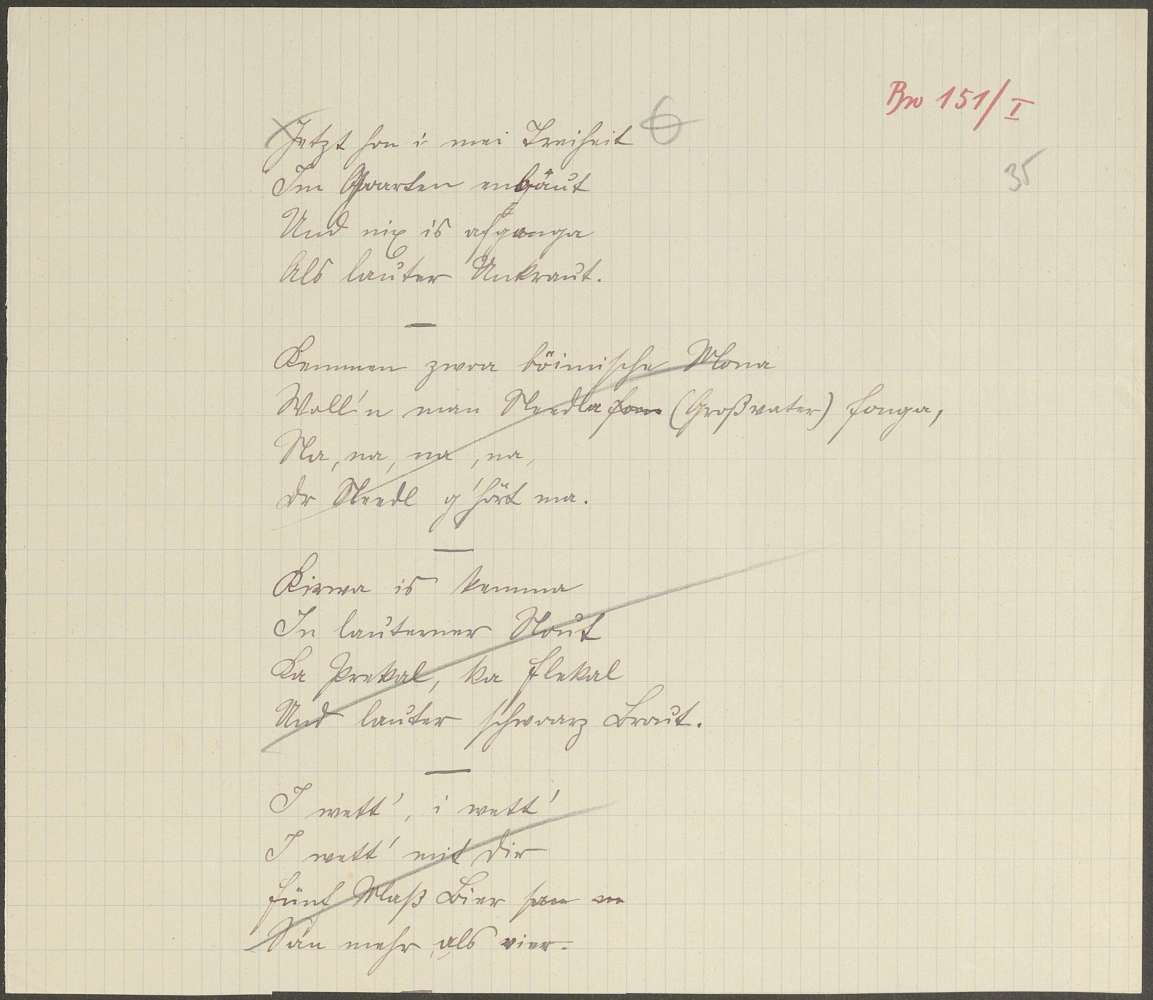 Bw 151/I
35
Jetzt hon i mei Freiheit 6
Im Goarten enbäut
Und nix is afganga
Als lauter Unkraut.
Kemmen zwoa böimische Mona
Woll'n man Needla (Großvater) fonga,
Na, na, na, na,
Dr Needl g'hört ma.
Kirwa is kemma
In lauterner Nout
Ka Prekal, ka Flekal
Und lauter schwoarz Braut.
I wett', i wett'
I wett' mit Dir
Fünf Maß Bier
Sän mehr als vier.